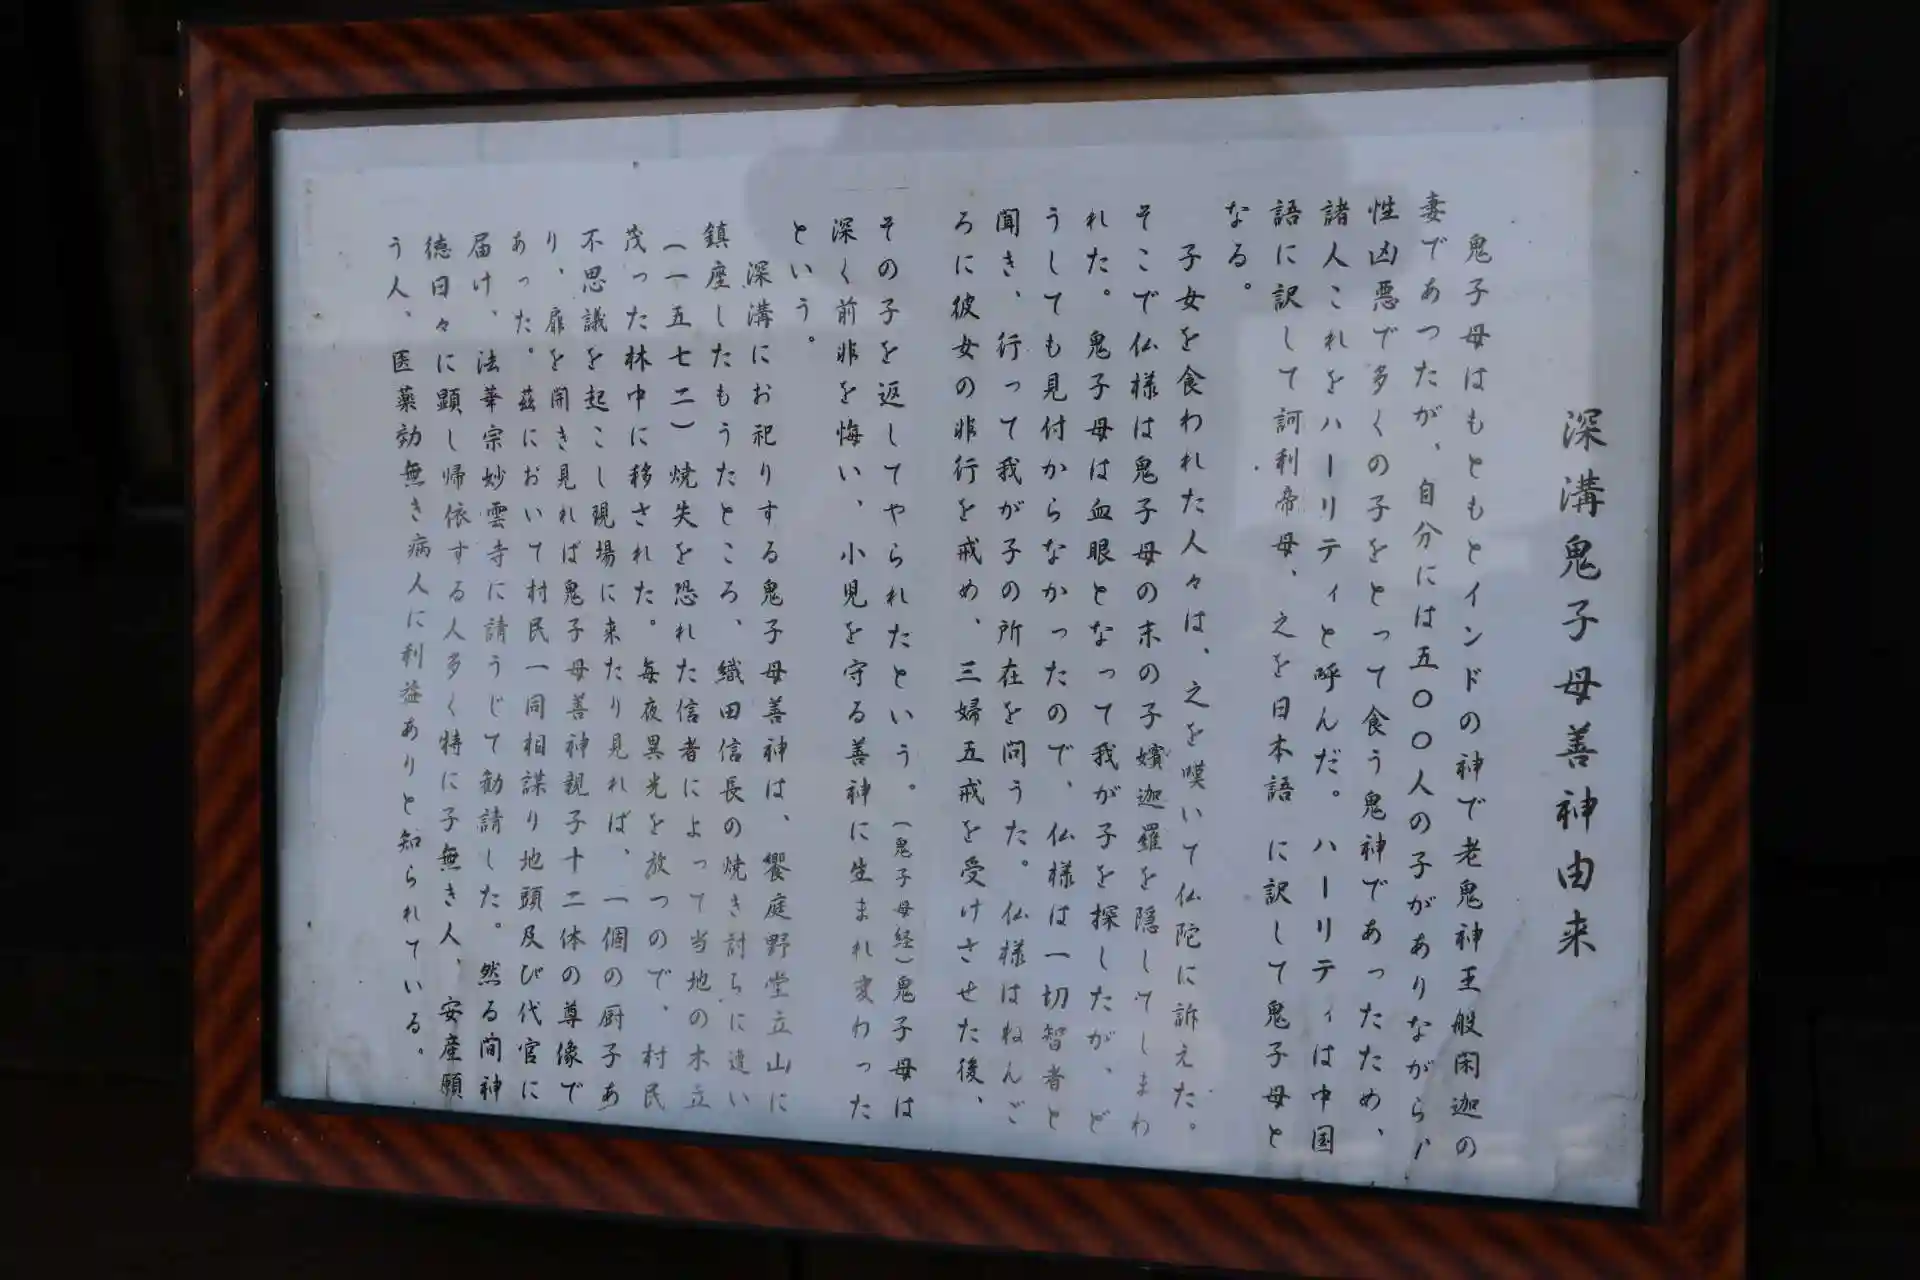 深溝鬼子母善神由来
鬼子母はもともとインドの神で老鬼神王般闲迦の
妻であつたが、自分には五〇〇人の子がありながら、
性凶悪で多くの子をとって食う鬼神であったため、
諸人これをハーリティと呼んだ。ハーリティは中国
語に訳して訶利帝母、之を日本語に訳して鬼子母と
なる。
子女を食われた人々は、之を嘆いて仏陀に訴えた。
そこで仏様は鬼子母の末の子嬪迦羅を隠してしまわ
れた。鬼子母は血眼となって我が子を探したが、ど
うしても見付からなかったので、仏様は一切智者と
聞き、行って我が子の所在を問うた。仏様はねんご
ろに彼女の非行を戒め、三婦五戒を受けさせた後、
その子を返してやられたという。(鬼子母経)鬼子母は
深く前非を悔い、小児を守る善神に生まれ変わった
という。
深溝にお祀りする鬼子母善神は、饗庭野堂立山に
鎮座したもうたところ、織田信長の焼き討ちに逢い
(一五七二)焼失を恐れた信者によって当地の木立
茂った林中に移された。毎夜異光を放つので、村民
不思議を起こし現場に来たり見れば、一個の厨子あ
り、扉を開き見れば鬼子母善神親子十二体の尊像で
あった。茲において村民一同相謀り地頭及び代官に
届け、法華宗妙雲寺に請うじて勧請した。然る間神
徳日々に顕し帰依する人多く特に子無き人、安産願
う人、医薬効無き病人に利益ありと知られている。